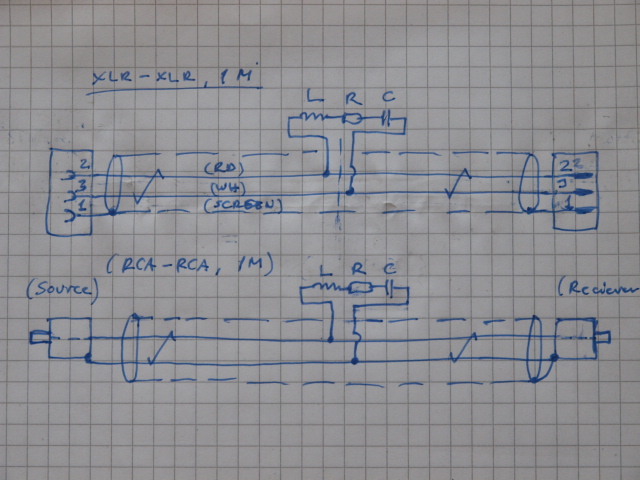 XLR-XLR, 1M
L R C
2 (RD) 2
3 (WH) 3
1 (SCREEN) 1
(RCA-RCA, 1M)
L R C
(Source) (Reciever